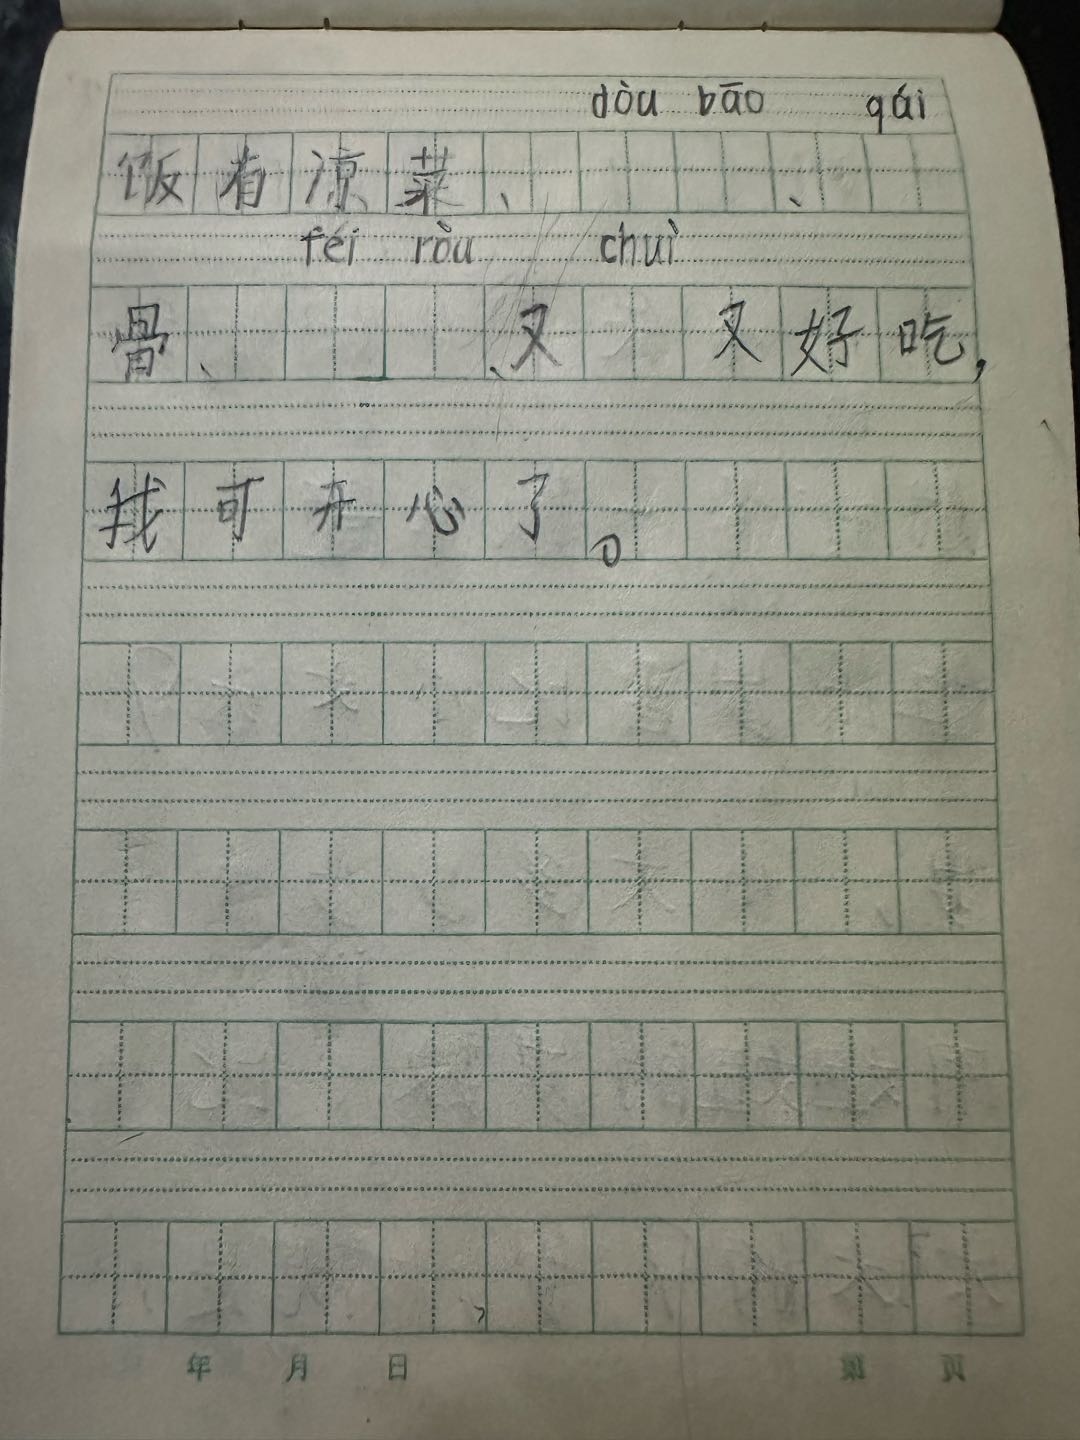 dòu bāo qái
饭有凉菜、、
féi ròu chuì
骨、、又又好吃,
找可开心了。
年 月 日 第 页